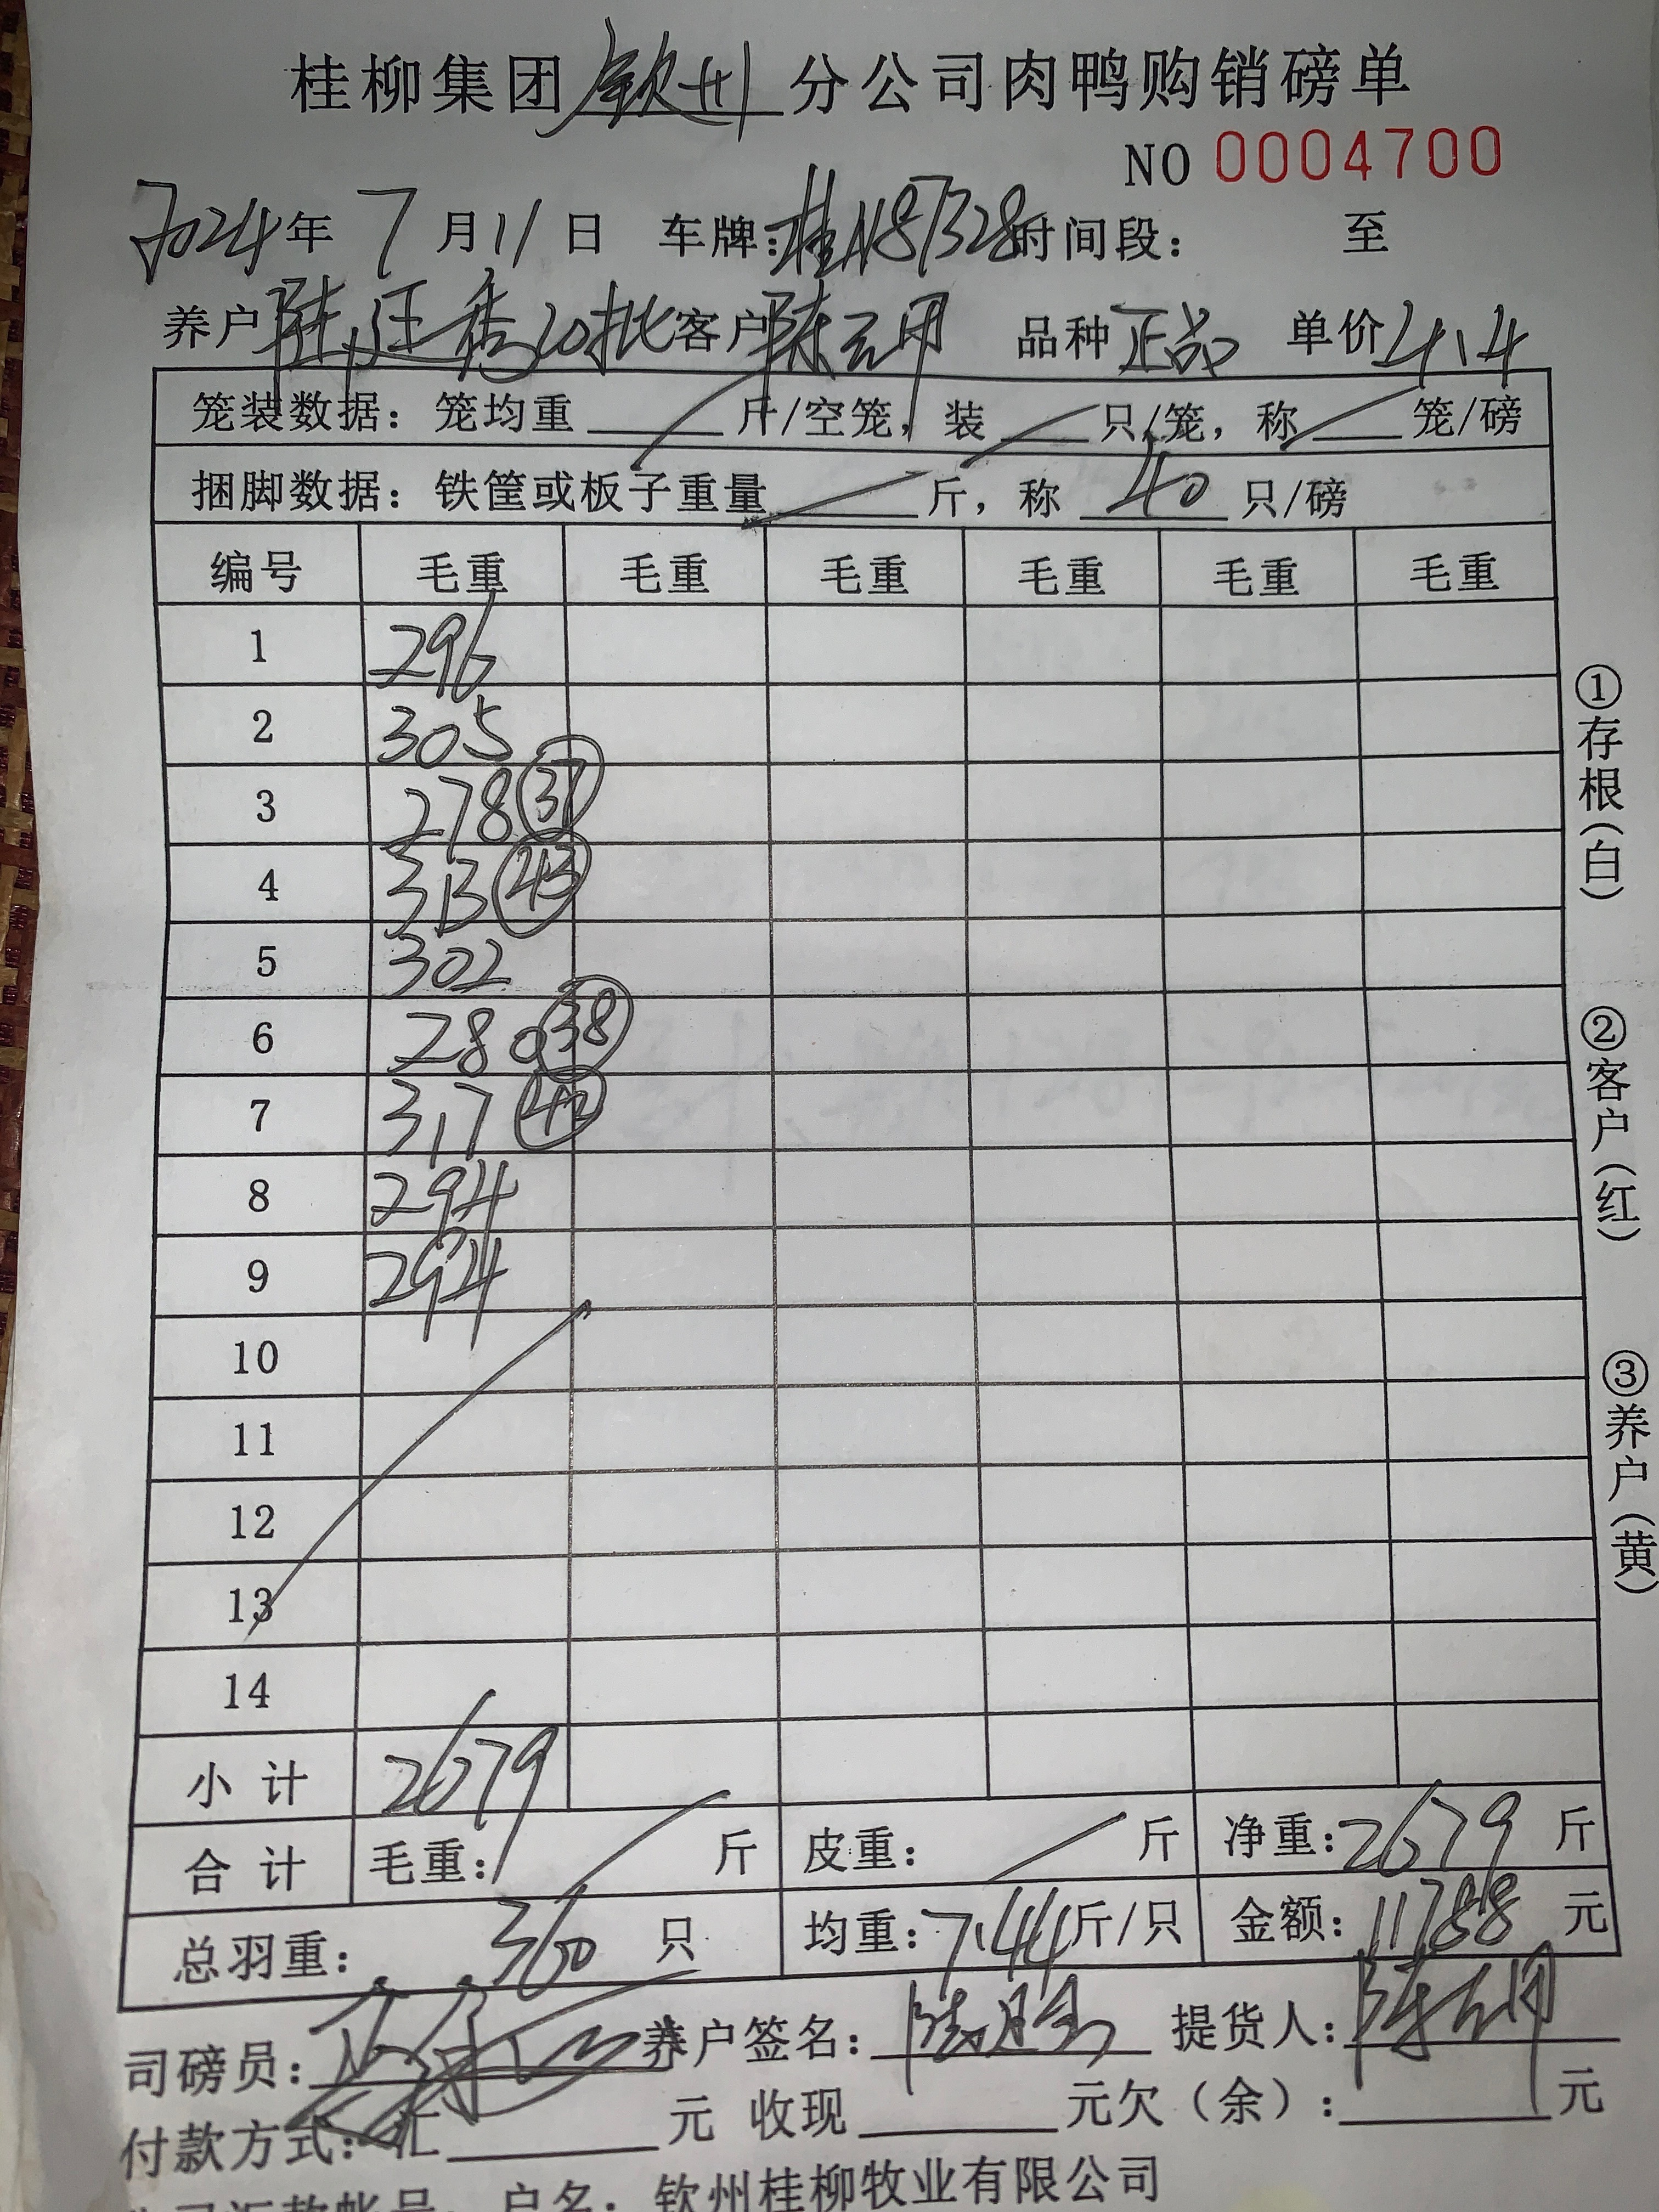 桂柳集团 钦州 分公司肉鸭购销磅单
NO 0004700
2024年 7 月 11 日 车牌:桂N87328 时间段: 至
养户 陆 秀 10批 客户 陈 品种 正品 单价 4.4
笼装数据: 笼均重 斤/空笼, 装 只/笼, 称 笼/磅
捆脚数据: 铁筐或板子重量 斤, 称 40 只/磅
编号 毛重 毛重 毛重 毛重 毛重 毛重
1 296
2 305
3 278 37
4 313 43
5 302
6 280 38
7 317 42
8 294
9 294
10
11
12
13
14
小计 2679
合计 毛重: 斤 皮重: 斤 净重:2679 斤
总羽重: 360 只 均重:7.44斤/只 金额:11788 元
司磅员: 养户签名: 提货人:
付款方式: 汇 元 收现 元欠(余): 元
户名: 钦州桂柳牧业有限公司
①存根(白)
②客户(红)
③养户(黄)